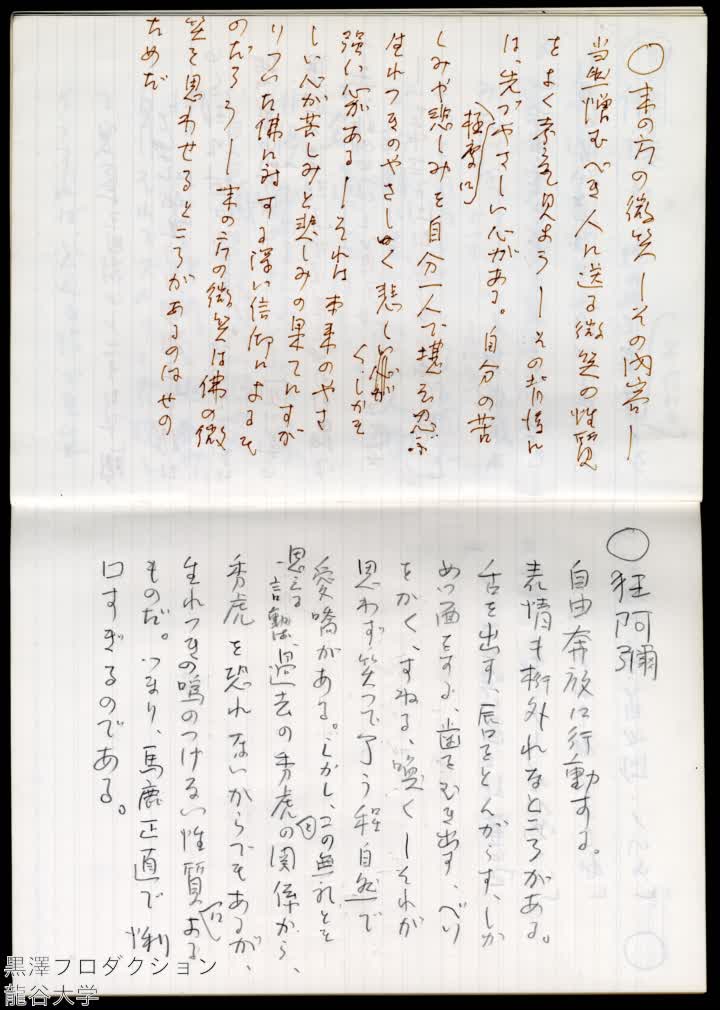 ○ 末の方の微笑ーその内容ー
当然憎むべき人に送る微笑の性質
をよく考え見ようーその背情に
は、先づやさしい心がある。自分の苦
しみや悲しみを自分一人で堪え忍ぶ
極度に
生れつきのやさしく悲しい
くしかも
強い心があるーそれは本来のやさ
しい心が苦しみと悲しみの果てにすが
りついた佛に対する深い信仰によるも
のだろうー末の方の微笑は佛の微
笑を思わせるところがあるのはその
ためだ
○ 狂阿彌
自由奔放に行動する。
表情も桁外れなところがある。
舌を出す、唇をとんがらす、しか
めっ面をする、歯をむき出す、べソ
をかく、すねる、喚くーそれが
思わず笑って了う程自然で
愛嬌がある。しかし、この無礼とも
思える
言動は、過去の秀虎との関係から、
秀虎を恐れないからでもあるが、
生れつきの嘘のつけない性質による
ものだ。つまり、馬鹿正直で悧
口すぎるのである。
黒澤プロダクション
龍谷大学